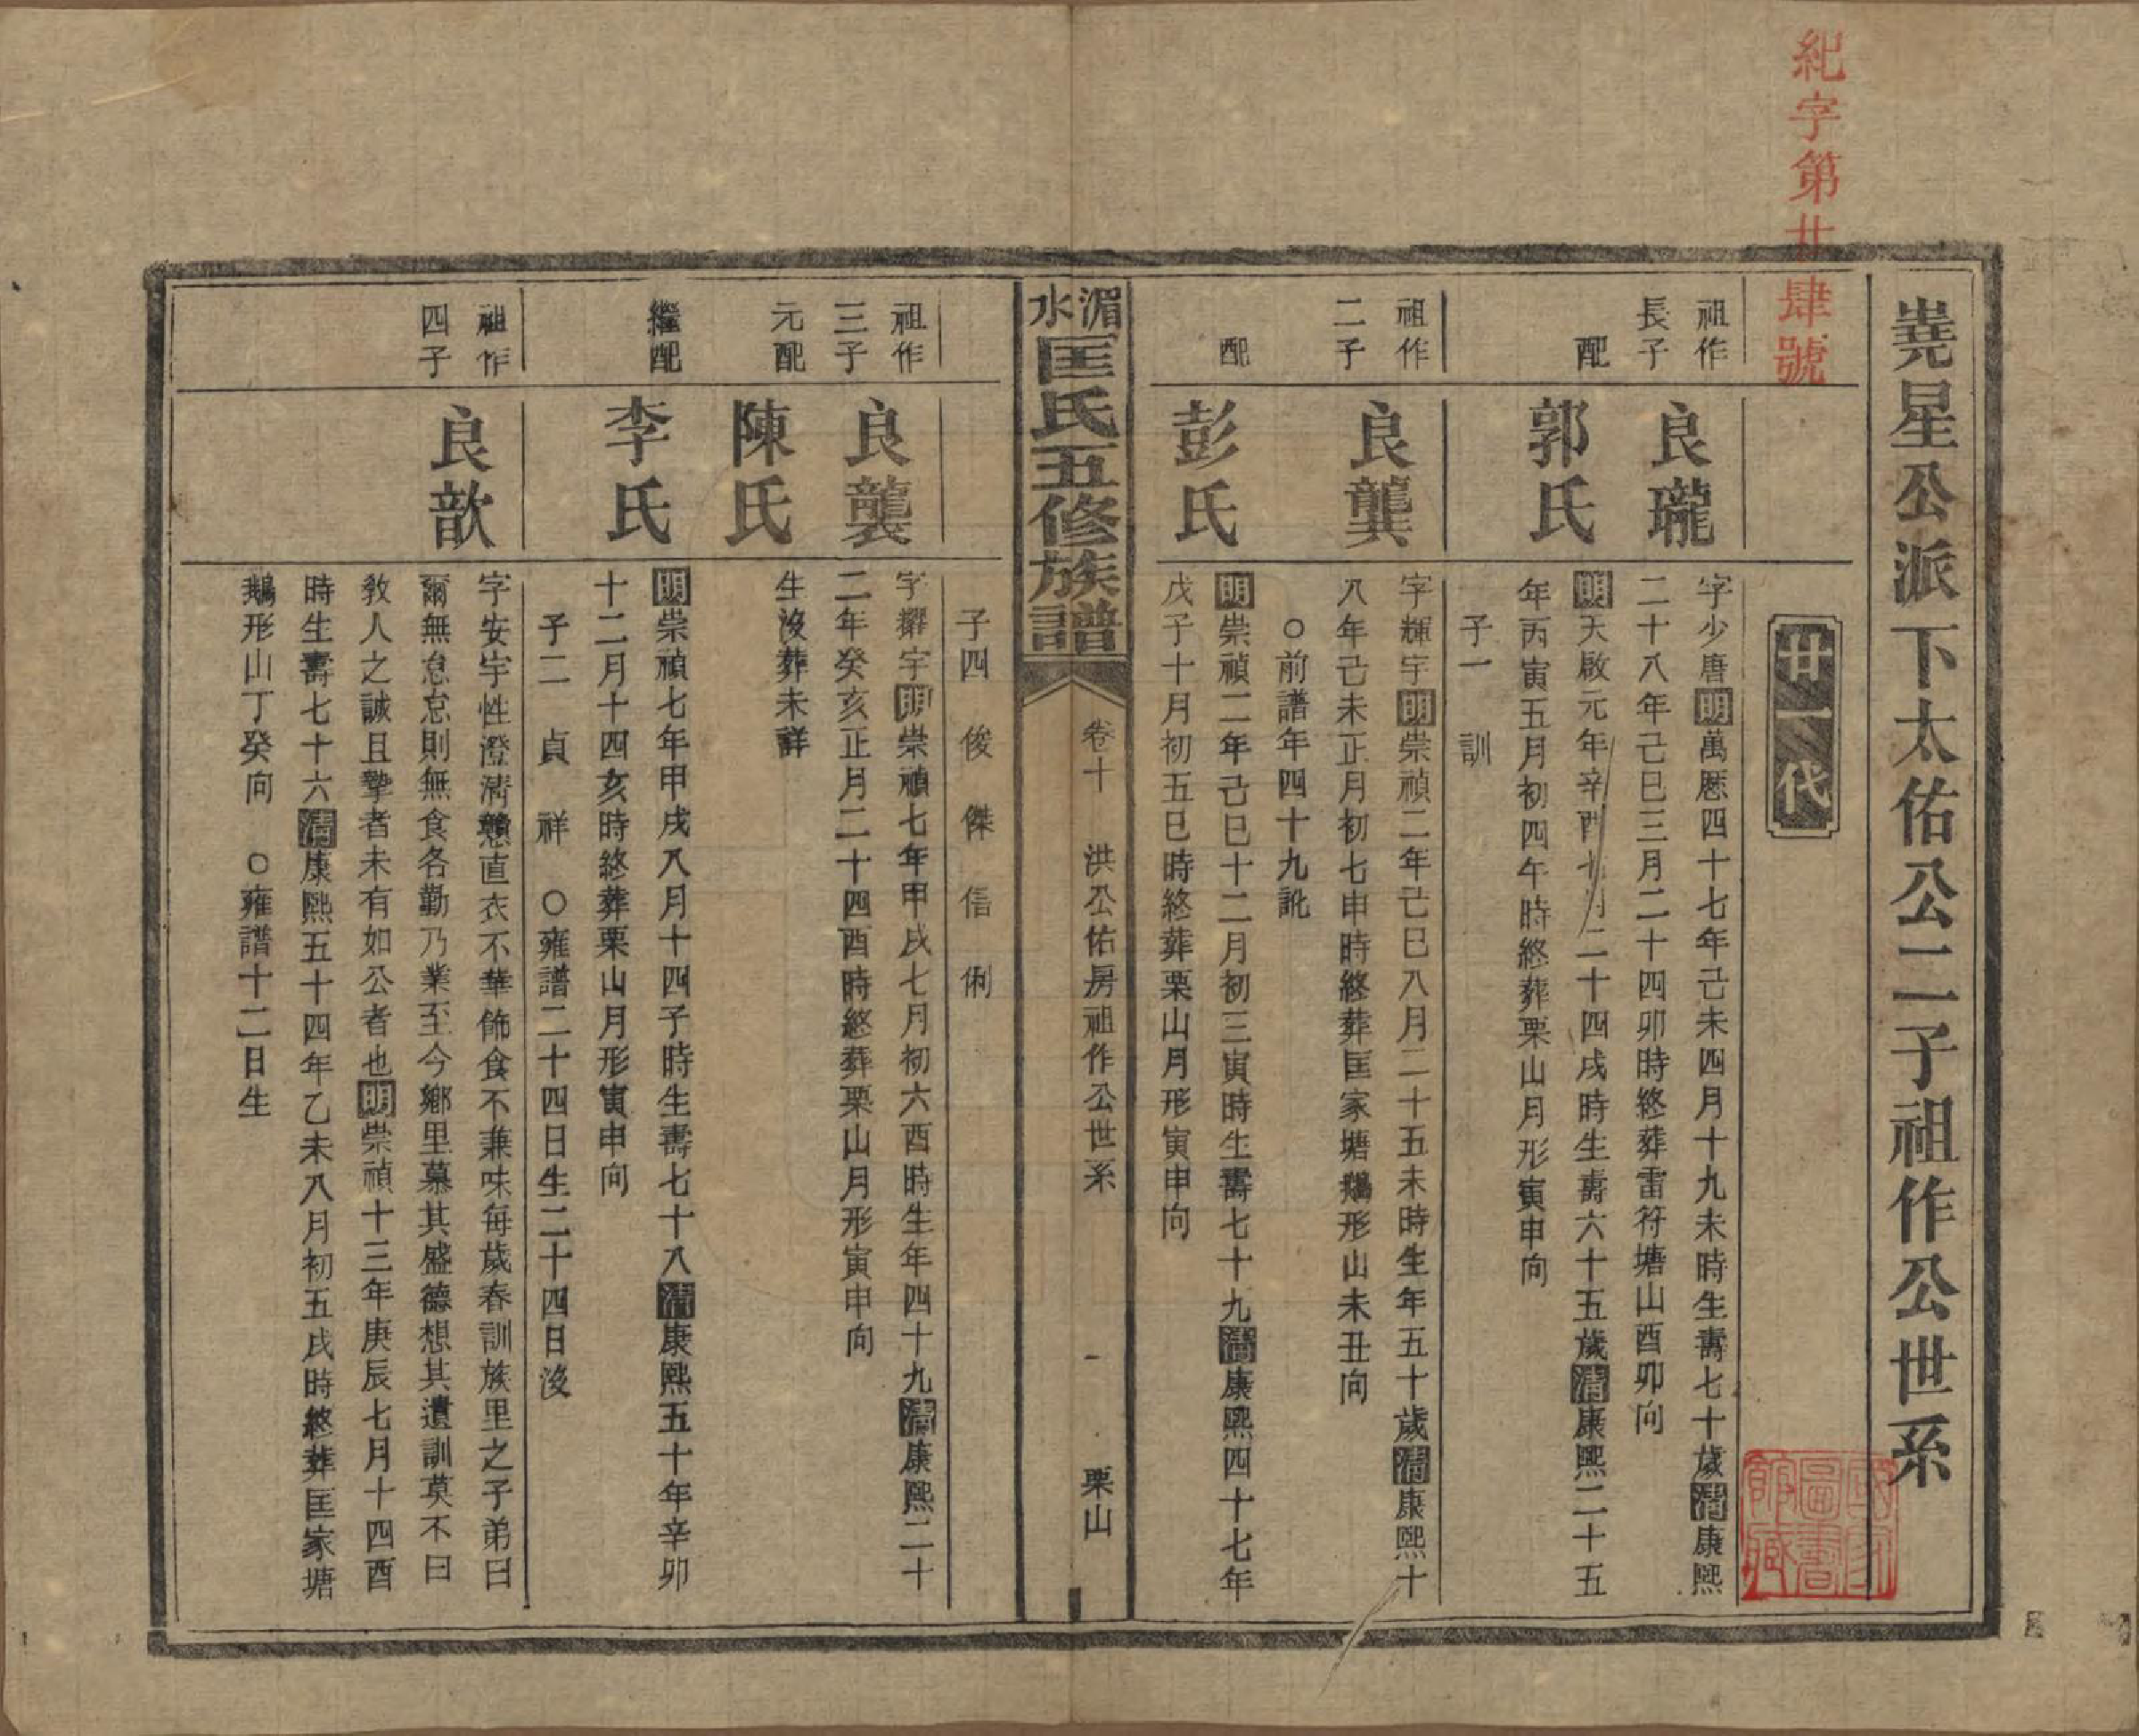 紀字第廿肆號
堯星公派下太佑公二子祖作公世系
國家圖書館藏
廿一代
祖作
長子
良瓏
字少唐明萬厯四十七年己未四月十九未時生壽七十歲清康熙
二十八年己巳三月二十四卯時終葬雷符塘山酉卯向
配
郭氏
明天啟元年辛酉七月二十四戌時生壽六十五歲清康熙二十五
年丙寅五月初四午時終葬栗山月形寅申向
子一 訓
祖作
二子
良龔
字輝宇明崇禎二年己巳八月二十五未時生年五十歲清康熙十
八年己未正月初七申時終葬匡家塘鵝形山未丑向
○前譜年四十九訛
配
彭氏
明崇禎二年己巳十二月初三寅時生壽七十九清康熙四十七年
戊子十月初五巳時終葬栗山月形寅申向
湄水匡氏五修族譜
卷十 洪公佑房祖作公世系 一 栗山
子四 俊 傑 信 俐
祖作
三子
良襲
字耀宇明崇禎七年甲戌七月初六酉時生年四十九清康熙二十
二年癸亥正月二十四酉時終葬栗山月形寅申向
元配
陳氏
生沒葬未詳
繼配
李氏
明崇禎七年甲戌八月十四子時生壽七十八清康熙五十年辛卯
十二月十四亥時終葬栗山月形寅申向
子二 貞 祥 ○雍譜二十四日生二十四日沒
祖作
四子
良歆
字安宇性澄清戇直衣不華飾食不兼味每歲春訓族里之子弟曰
爾無怠怠則無食各勤乃業至今鄉里慕其盛德想其遺訓莫不曰
教人之誠且摯者未有如公者也明崇禎十三年庚辰七月十四酉
時生壽七十六清康熙五十四年乙未八月初五戌時終葬匡家塘
鵝形山丁癸向 ○雍譜十二日生